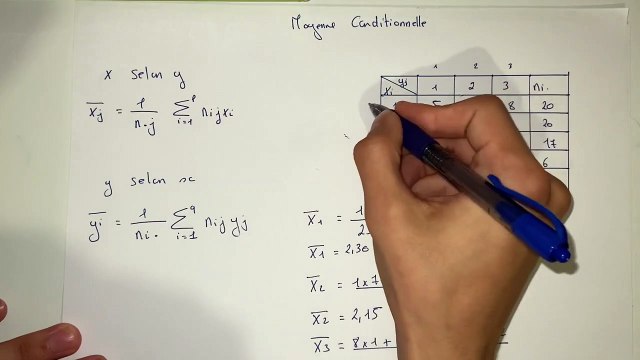 Moyenne Conditionnelle
x selon y
x̄j = 1/n.j Σ(i=1→p) nij xi
y selon x
ȳi = 1/ni. Σ(i=1→q) nij yj
1 2 3
xi yj 1 2 3 ni.
5 8 20
20
17
6
x̄1 =
x̄1 = 2,30
x̄2 = 1x7
x̄2 = 2,15
x̄3 = 8x1+